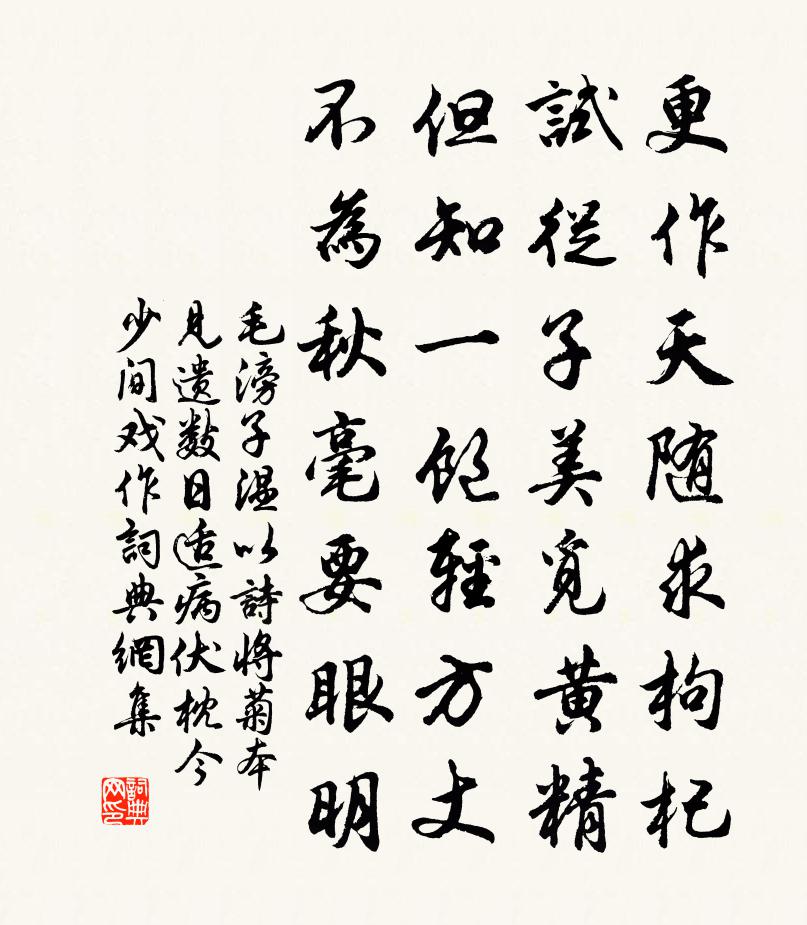 更作天随求枸杞
試從子美覓黄精
但知一飽輕方丈
不為秋毫要眼明
毛滂子湿以詩將菊本
見遗数日适病伏枕今
少间戏作詞典網集
詞典
网印